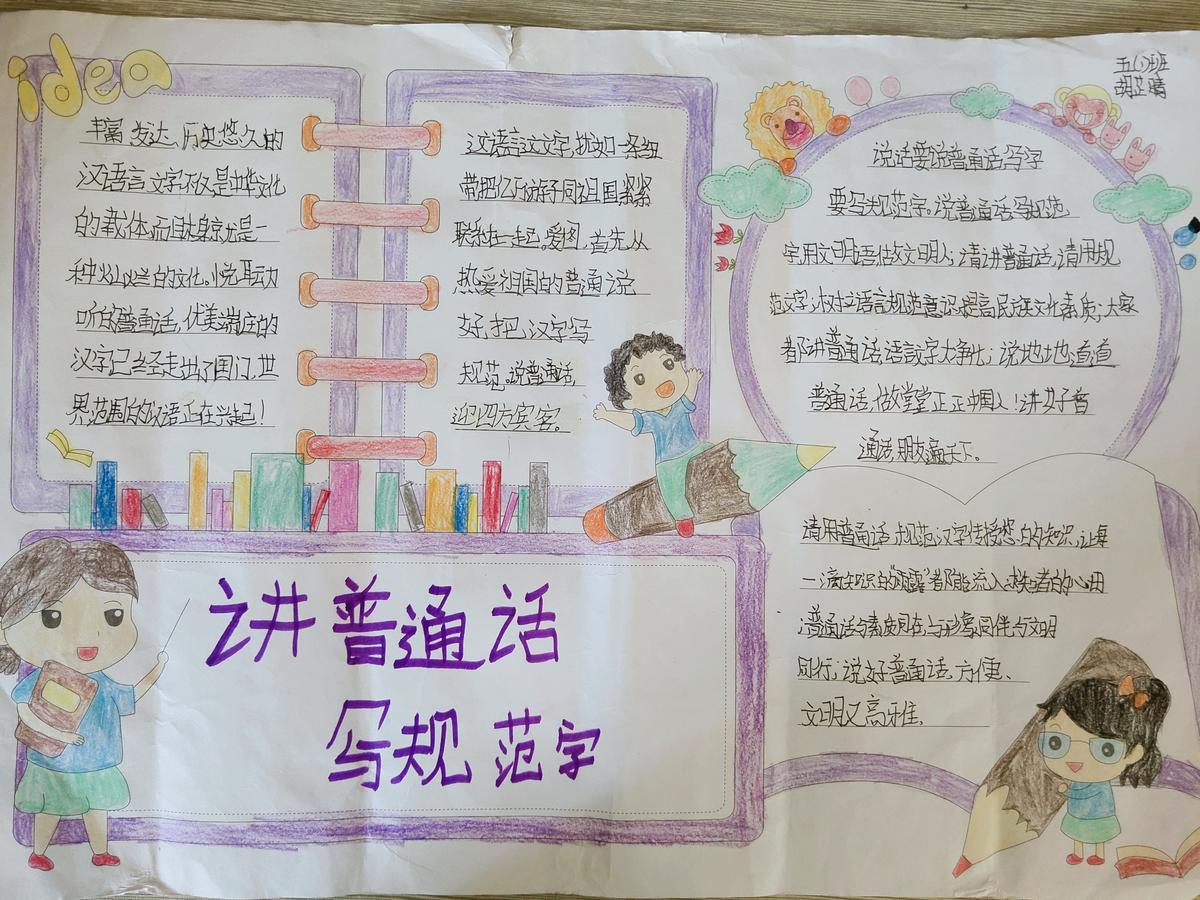 idea
丰富、发达、历史悠久的
汉语言文字不仅是中华文化
的载体,而且本身就是一
种火以兰的文化。悦耳动
听的普通话,优美端庄的
汉字已经走出了国门,世
界范围的汉语正在兴起!
汉语言汉文字,犹如一条纽
带把亿万游子同祖国紧紧
联系在一起。爱国,首先从
热爱祖国的普通说
好,把汉字写
规范。说普通话,
迎四方宾客。
五(1)班
胡芷晴
说话要说普通话,写字
要写规范字。说普通话写规范
字,用文明语做文明人;请讲普通话,请用规
范文字;树立语言规范意识,提高民族文化素质;大家
都讲普通话,语言文字大净化;说地地道道
普通话,做堂堂正正中国人!讲好普
通话,朋友遍天下。
讲普通话
写规范字
请用普通话、规范汉字传授您的知识,让每
一滴知识的“雨露”都能流入求知者的心田
;普通话与素质同在,与形象同伴,与文明
同行;说好普通话,方便、
文明又高雅.